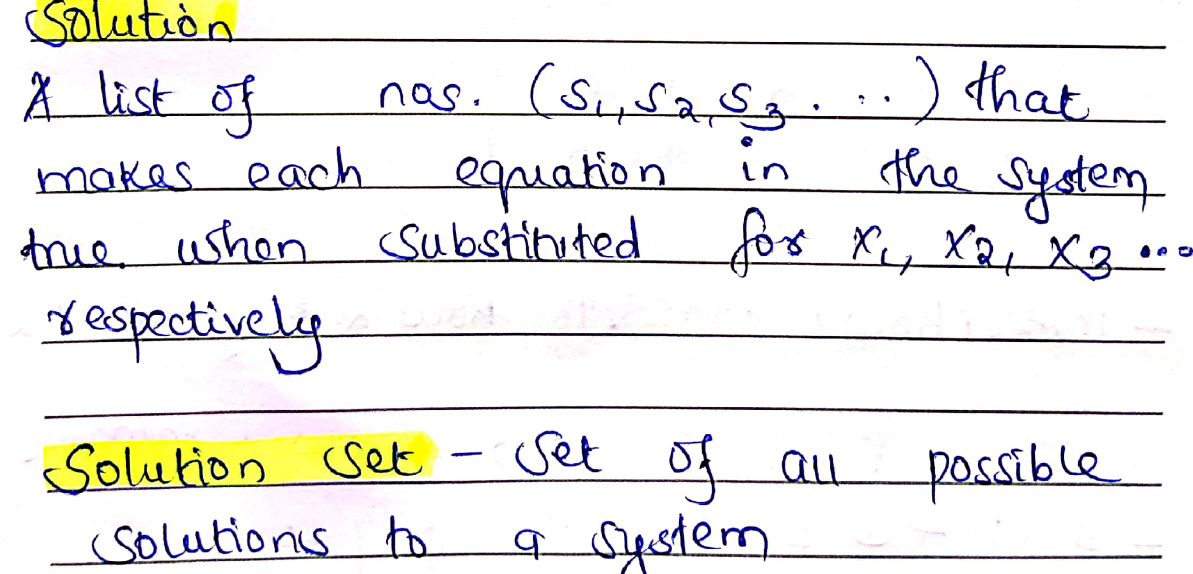 Solution
A list of nos. (s₁, s₂, s₃ ....) that
makes each equation in the system
true when substituted for x₁, x₂, x₃ ...
respectively
Solution set - set of all possible
solutions to a system